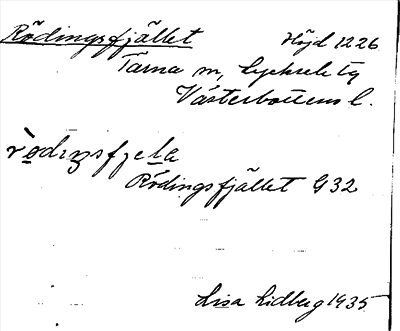 Rödingsfjället Höjd 1226
Tärna sn, Lycksele tg
Västerbottens l.
rὸdıŋsfjɛla
Rödingsfjället G32
Lisa Lidberg 1935